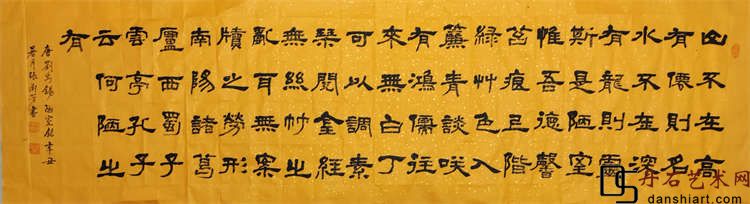 山不在高
有僊則名
水不在深
有龍則靈
斯是陋室
惟吾德馨
苔痕上階
綠艸色入
簾青談咲
有鴻儒往
來無白丁
可以調素
琴閱金經
無絲竹之
亂耳無案
牘之勞形
南陽諸葛
廬西蜀子
雲亭孔子
云何陋之
有
唐劉禹錫陋室銘辛丑
月張書
丹石艺术网
danshiart.com